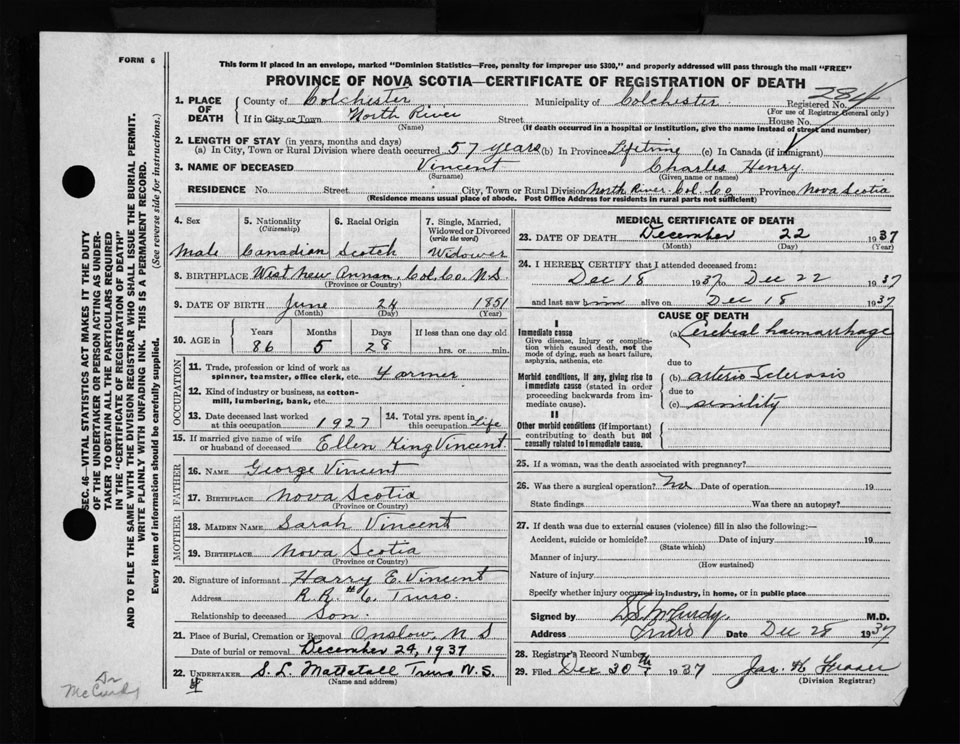 FORM 6
This form if placed in an envelope, marked "Dominion Statistics—Free, penalty for improper use $300," and properly addressed will pass through the mail "FREE"
PROVINCE OF NOVA SCOTIA—CERTIFICATE OF REGISTRATION OF DEATH
284
1. PLACE OF DEATH County of Colchester Municipality of Colchester. Registered No.
(For use of Registrar General only)
If in City or Town North River Street House No.
(Name) (If death occurred in a hospital or institution, give the name instead of street and number)
2. LENGTH OF STAY (in years, months and days)
(a) In City, Town or Rural Division where death occurred 57 years (b) In Province Lifetime (c) In Canada (if immigrant)
3. NAME OF DECEASED Vincent Charles Henry.
(Surname) (Given name or names)
RESIDENCE No. Street City, Town or Rural Division North River. Col. Co Province Nova Scotia
(Residence means usual place of abode. Post Office Address for residents in rural parts not sufficient)
4. Sex 5. Nationality (Citizenship) 6. Racial Origin 7. Single, Married, Widowed or Divorced (write the word)
Male Canadian Scotch Widower
8. BIRTHPLACE West New Annan, Col. Co. N.S.
(Province or Country)
9. DATE OF BIRTH June 24 1851
(Month) (Day) (Year)
10. AGE in Years Months Days If less than one day old
86 5 28 hrs. or min.
OCCUPATION
11. Trade, profession or kind of work as spinner, teamster, office clerk, etc. Farmer
12. Kind of industry or business, as cotton-mill, lumbering, bank, etc.
13. Date deceased last worked at this occupation 1927 14. Total yrs. spent in this occupation Life
15. If married give name of wife or husband of deceased Ellen King Vincent
FATHER
16. NAME George Vincent
17. BIRTHPLACE Nova Scotia
(Province or Country)
MOTHER
18. MAIDEN NAME Sarah Vincent
19. BIRTHPLACE Nova Scotia
(Province or Country)
20. Signature of informant Harry E. Vincent
Address R.R. #6 Truro.
Relationship to deceased Son
21. Place of Burial, Cremation or Removal Onslow, N S
Date of burial or removal December 24, 1937
22. UNDERTAKER S. L. Mattatall Truro N.S.
(Name and address)
MEDICAL CERTIFICATE OF DEATH
23. DATE OF DEATH December 22 1937
(Month) (Day) (Year)
24. I HEREBY CERTIFY that I attended deceased from:
Dec 18 1937 to Dec 22 1937
and last saw him alive on Dec 18 1937
CAUSE OF DEATH
I
Immediate cause
Give disease, injury or complication which caused death, not the mode of dying, such as heart failure, asphyxia, asthenia, etc
(a) Cerebral haemorrhage
due to
Morbid conditions, if any, giving rise to immediate cause (stated in order proceeding backwards from immediate cause).
(b) arterio Sclerosis
due to
(c) senility
II
Other morbid conditions (if important) contributing to death but not causally related to immediate cause.
25. If a woman, was the death associated with pregnancy?
26. Was there a surgical operation? No Date of operation 19
State findings Was there an autopsy?
27. If death was due to external causes (violence) fill in also the following:—
Accident, suicide or homicide? Date of injury 19
(State which)
Manner of injury
(How sustained)
Nature of injury
Specify whether injury occurred in industry, in home, or in public place
Signed by S.S. McCurdy M.D.
Address Truro Date Dec 28 1937
28. Registrar's Record Number
29. Filed Dec 30th 1937 Jas. H. Fraser
(Division Registrar)
SEC. 46—VITAL STATISTICS ACT MAKES IT THE DUTY
OF THE UNDERTAKER OR PERSON ACTING AS UNDER-
TAKER TO OBTAIN ALL THE PARTICULARS REQUIRED
IN THE "CERTIFICATE OF REGISTRATION OF DEATH"
AND TO FILE THE SAME WITH THE DIVISION REGISTRAR WHO SHALL ISSUE THE BURIAL PERMIT.
WRITE PLAINLY WITH UNFADING INK. THIS IS A PERMANENT RECORD.
Every item of information should be carefully supplied. (See reverse side for instructions.)
Dr
McCurdy